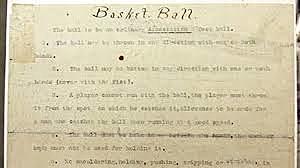 Basket Ball.
The ball to be an ordinary Association foot ball.
1. The ball may be thrown in any direction with one or both
hands.
2. The ball may be batted in any direction with one or both
hands (never with the fist).
3. A player cannot run with the ball, the player must throw
it from the spot on which he catches it, allowance to be made for
a man who catches the ball when running at a good speed.
4. The ball must be held
must not be used for holding it.
5. No shouldering, holding, pushing, tripping or